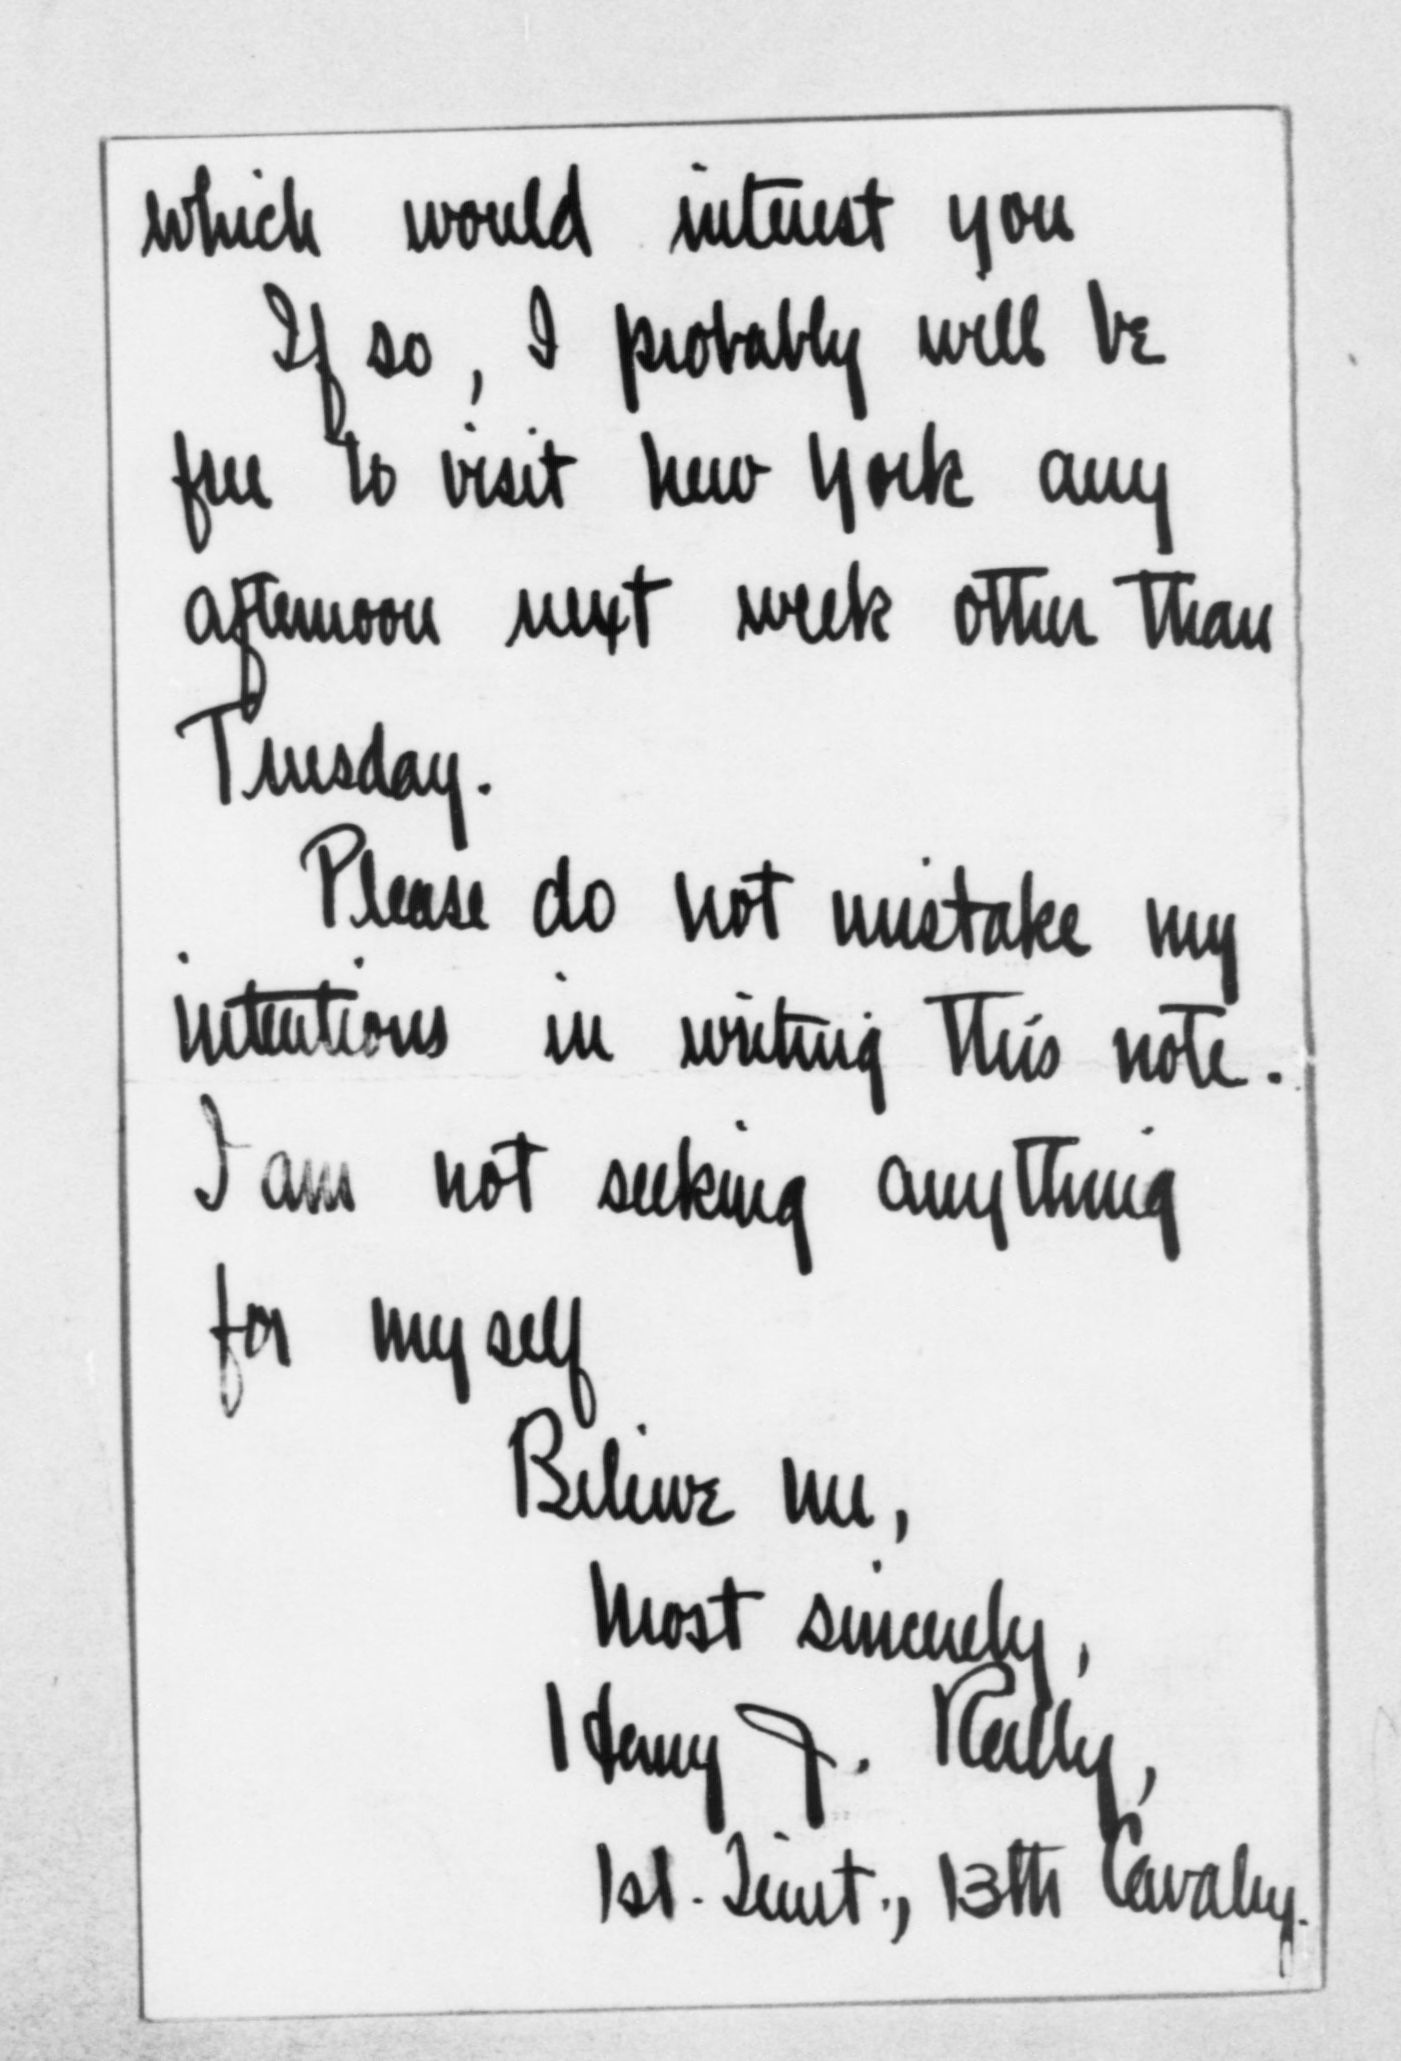 which would interest you
If so, I probably will be
free to visit New York any
afternoon next week other than
Tuesday.
Please do not mistake my
intentions in writing this note.
I am not seeking anything
for myself
Believe me,
Most sincerely,
Henry J. Reilly,
1st. Lieut., 13th Cavalry.